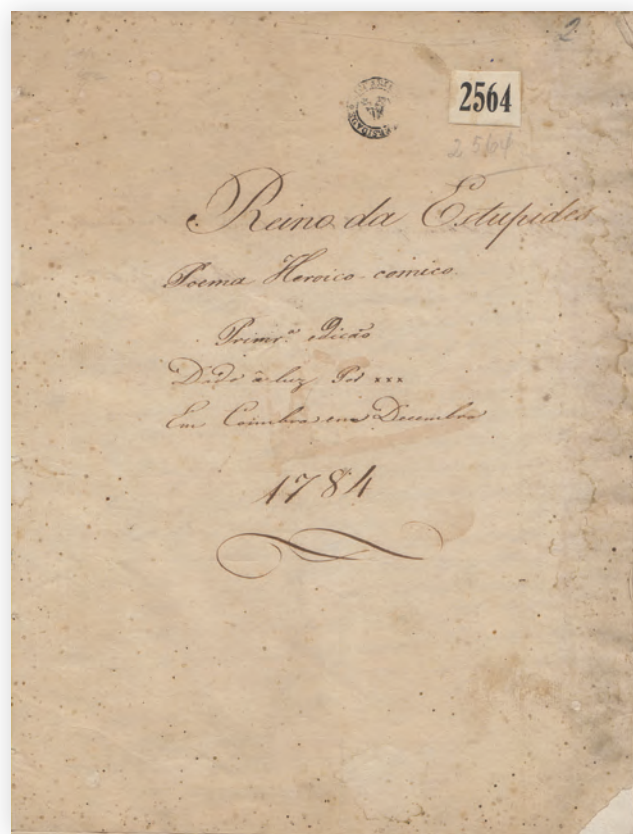 2
2564
2564
Reino da Estupides
Poema Heroico-comico.
Primr.ª edicão
Dado á luz Por xxx
Em Coimbra em Decembro
1784